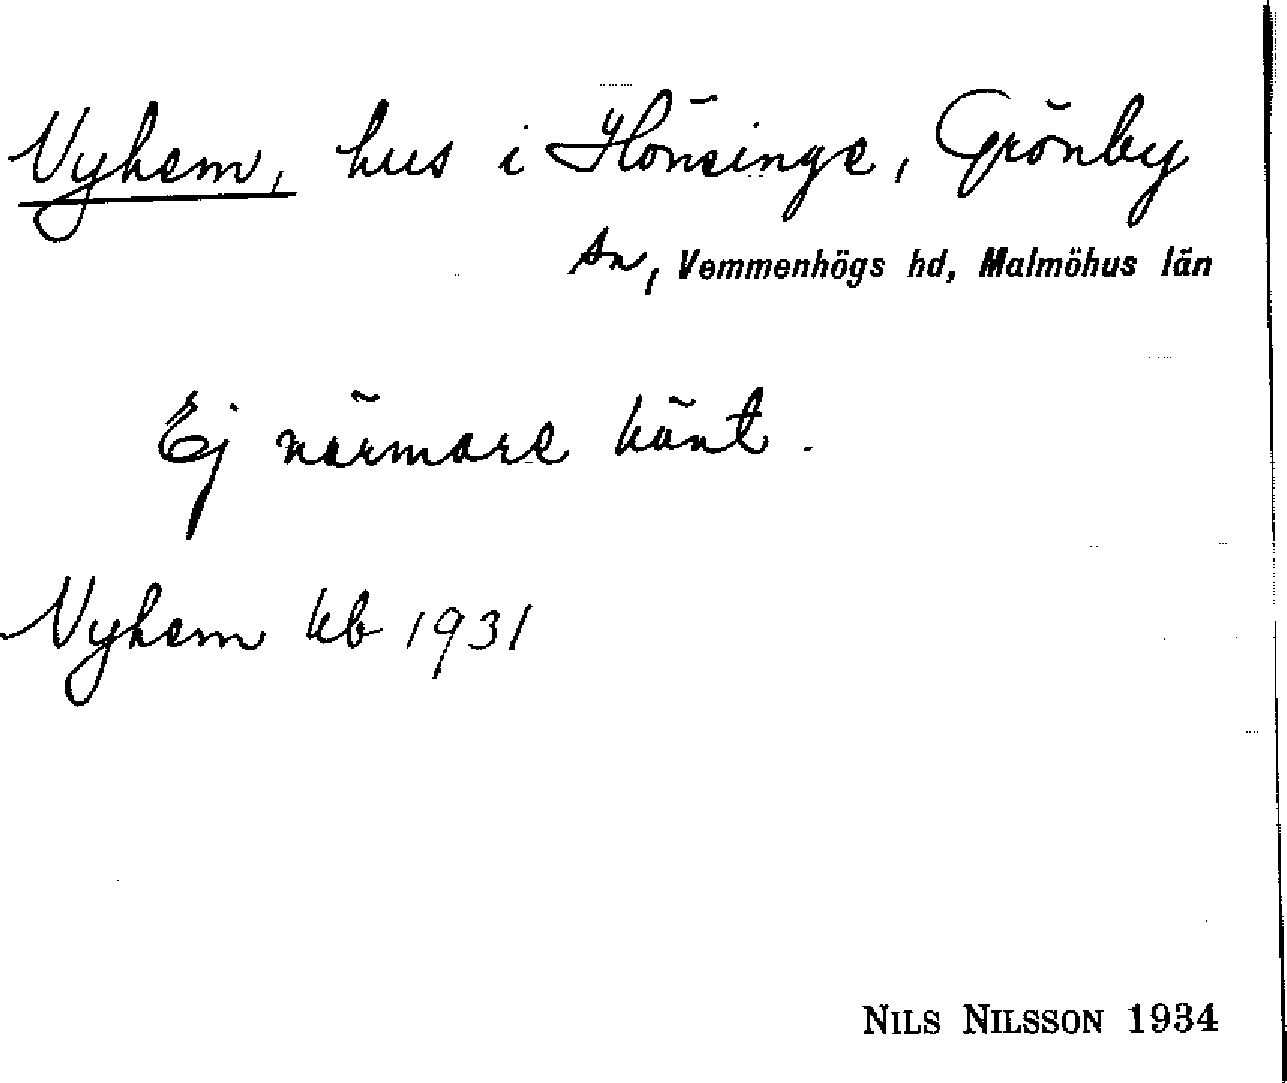 Nyhem, hus i Hönsinge, Grönby
sn, Vemmenhögs hd, Malmöhus län
Ej närmare känt.
Nyhem kb 1931
NILS NILSSON 1934